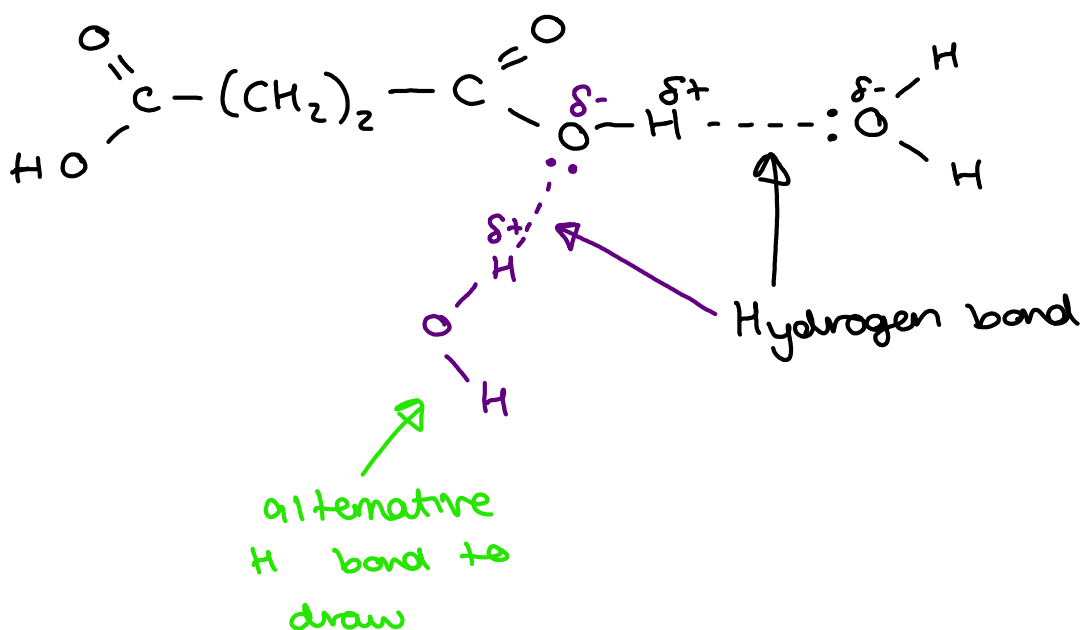 O O
C — (CH₂)₂ — C
HO
δ- δ+ δ-
O — H ------- : O
H
H
δ+
H
O
H
Hydrogen bond
alternative
H bond to
draw